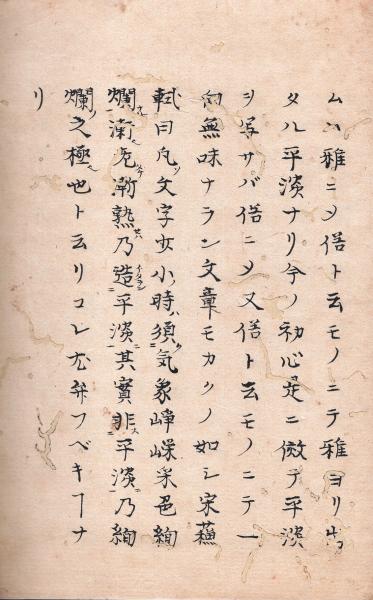 ムハ雅ニメ俗ト云モノニテ雅ヨリ出
タル平淡ナリ今ノ初心是ニ倣テ平淡
ヲ写サバ俗ニメ又俗ト云モノニテ一
向無味ナラン文章モカクノ如シ宋蘓
軾曰凡文字少小時須気象崢嶸采色絢
爛漸老漸熟乃造平淡其實非平淡乃絢
爛之極也ト云リコレ尤弁フベキヿナ
リ